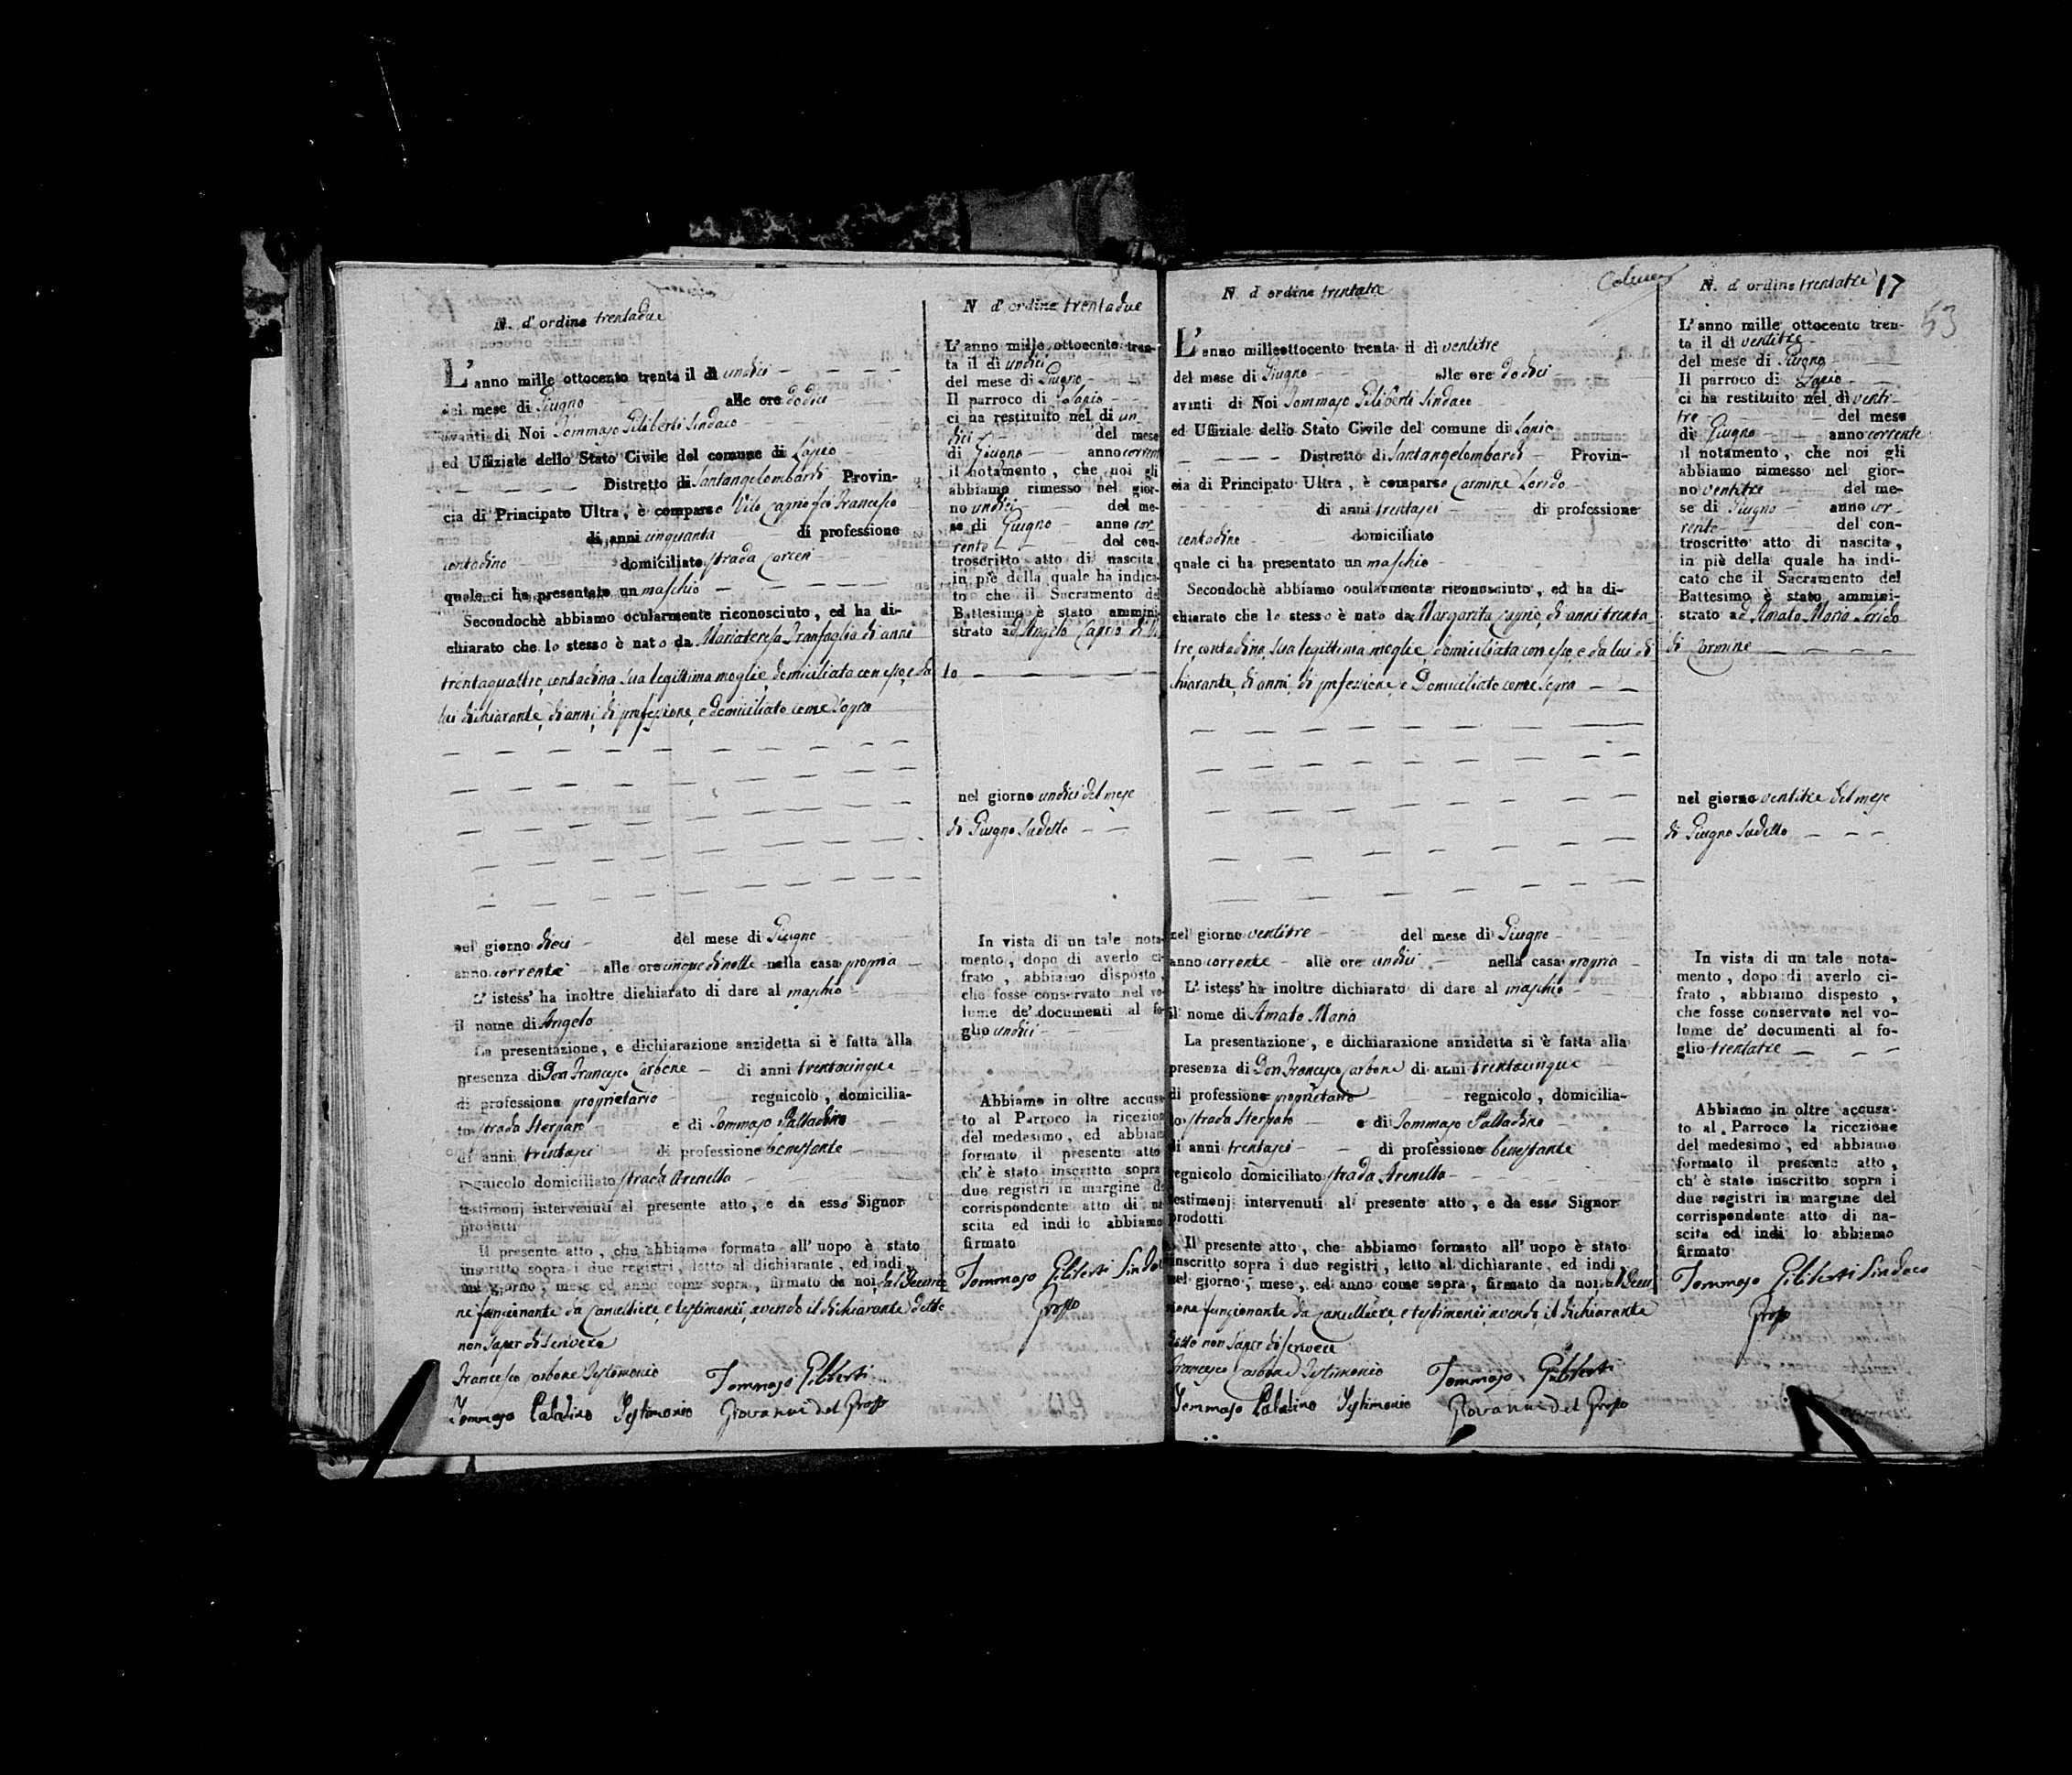 N. d'ordine trentadue
L'anno mille ottocento trenta il di undici
del mese di Giugno alle ore dodici
avanti di Noi Tommaso Giliberti Sindaco
ed Uffiziale dello Stato Civile del comune di Lapio
Distretto di Santangelombardi Provin-
cia di Principato Ultra, è comparso Vito Caprio fu Francesco
di anni cinquanta di professione
contadino domiciliato strada Carceri
quale ci ha presentato un maschio
Secondochè abbiamo ocularmente riconosciuto, ed ha di-
chiarato che lo stesso è nato da Mariateresa Tranfaglia di anni
trentaquattro, contadina, sua legittima moglie, domiciliata con esso, e da
lui dichiarante, di anni, di professione, e domiciliato come sopra
nel giorno dieci del mese di Giugno
anno corrente alle ore cinque di notte nella casa propria
L'istess' ha inoltre dichiarato di dare al maschio
il nome di Angelo
La presentazione, e dichiarazione anzidetta si è fatta alla
presenza di Don Francesco Carbone di anni trentacinque
di professione proprietario regnicolo, domicilia-
to strada Sterparo e di Tommaso Palladino
di anni trentasei di professione benestante
regnicolo domiciliato strada Arenella
testimonj intervenuti al presente atto, e da esso Signor
prodotti
Il presente atto, che abbiamo formato all'uopo è stato
inscritto sopra i due registri, letto al dichiarante, ed indi,
nel giorno, mese ed anno come sopra, firmato da noi, dal Decurio
ne funzionante da Cancelliere, e testimonii, avendo il dichiarante detto
non saper di scrivere
Francesco Carbone Testimonio Tommaso Giliberti
Tommaso Paladino Testimonio Giovanni del Grosso
N d'ordine trentadue
L'anno mille ottocento tren-
ta il di undici
del mese di Giugno
Il parroco di Lapio
ci ha restituito nel di un
dici del mese
di Giugno anno corrente
il notamento, che noi gli
abbiamo rimesso nel gior-
no undici del me-
se di Giugno anno cor-
rente del con-
troscritto atto di nascita
in piè della quale ha indica-
to che il Sacramento del
Battesimo è stato ammini-
strato ad Angelo Caprio di Vi
to
nel giorno undici del mese
di Giugno sudetto
In vista di un tale nota-
mento, dopo di averlo ci-
frato, abbiamo disposto,
che fosse conservato nel vo-
lume de' documenti al fo-
glio undici
Abbiamo in oltre accusa-
to al Parroco la ricezione
del medesimo, ed abbiamo
formato il presente atto
ch'è stato inscritto sopra
due registri in margine del
corrispondente atto di na
scita ed indi lo abbiamo
firmato
Tommaso Giliberti Sindaco
Grosso
N d'ordine trentatre
L'anno milleottocento trenta il di ventitre
del mese di Giugno alle ore dodici
avanti di Noi Tommaso Giliberti Sindaco
ed Uffiziale dello Stato Civile del comune di Lapio
Distretto di Santangelombardi Provin-
cia di Principato Ultra, è comparso Carmine Lorido
di anni trentasei di professione
contadino domiciliato
quale ci ha presentato un maschio
Secondochè abbiamo ocularmente riconosciuto, ed ha di-
chiarato che lo stesso è nato da Margarita Caprio, di anni trenta
tre, contadina, sua legittima moglie, domiciliata con esso, e da lui di
chiarante, di anni, di professione e Domiciliato come sopra
nel giorno ventitre del mese di Giugno
anno corrente alle ore undici nella casa propria
L'istess' ha inoltre dichiarato di dare al maschio
il nome di Amato Maria
La presentazione, e dichiarazione anzidetta si è fatta alla
presenza di Don Francesco Carbone di anni trentacinque
di professione proprietario regnicolo, domicilia-
to strada Sterparo e di Tommaso Palladino
di anni trentasei di professione benestante
regnicolo domiciliato strada Arenella
testimonj intervenuti al presente atto, e da esso Signor
prodotti
Il presente atto, che abbiamo formato all'uopo è stato
inscritto sopra i due registri, letto al dichiarante, ed indi,
nel giorno, mese, ed anno come sopra, firmato da noi, dal Decu
rione funzionante da Cancelliere, e testimonii, avendo il dichiarante
detto non saper di scrivere
Francesco Carbone Testimonio Tommaso Giliberti
Tommaso Paladino Testimonio Giovanni del Grosso
N. d'ordine trentatre 17
53
L'anno mille ottocento tren-
ta il di ventitre
del mese di Giugno
Il parroco di Lapio
ci ha restituito nel di venti-
tre del mese
di Giugno anno corrente
il notamento, che noi gli
abbiamo rimesso nel gior-
no ventitre del me-
se di Giugno anno cor-
rente del con-
troscritto atto di nascita,
in piè della quale ha indi-
cato che il Sacramento del
Battesimo è stato ammini-
strato ad Amato Maria Lorido
di Carmine
nel giorno ventitre del mese
di Giugno sudetto
In vista di un tale nota-
mento, dopo di averlo ci-
frato, abbiamo disposto,
che fosse conservato nel vo-
lume de' documenti al fo-
glio trentatre
Abbiamo in oltre accusa-
to al Parroco la ricezione
del medesimo, ed abbiamo
formato il presente atto,
ch'è stato inscritto sopra i
due registri in margine del
corrispondente atto di na-
scita ed indi lo abbiamo
firmato
Tommaso Giliberti Sindaco
Grosso